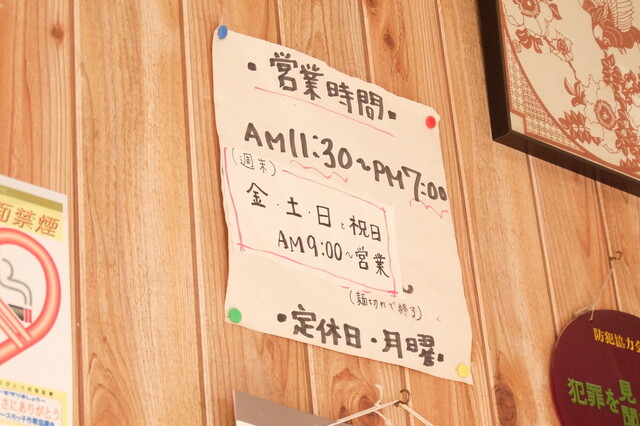 ・営業時間・
AM11:30〜PM7:00
(週末)
金・土・日と祝日
AM9:00〜営業
(麺切れで終了)
・定休日・月曜・
面禁煙
さにありがとう
防犯協力
犯罪を見